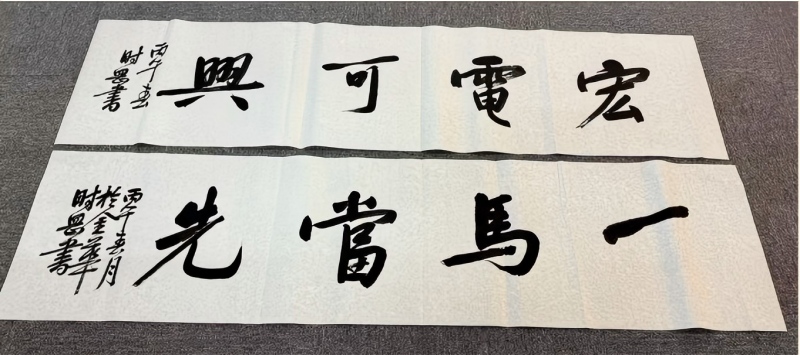 宏電可興
丙午春
时思書
一馬當先
丙午春月
於金華
时思書